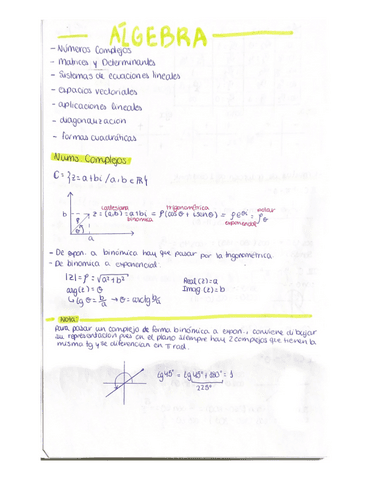 ÁLGEBRA
- Números Complejos
- Matrices y Determinantes
- Sistemas de ecuaciones lineales
- espacios vectoriales
- aplicaciones lineales
- diagonalizacion
- formas cuadráticas
Nums. Complejos
C = {z = a+bi / a,b ∈ R}
cartesiana trigonométrica polar
b z = (a,b) = a+bi = ρ(cosθ + isenθ) = ρe^θi = ρθ
binómica exponencial
a
- De expon. a binómica hay que pasar por la trigometrica.
- De binomica a exponencial.
|z| = ρ = √a²+b² Real(z) = a
arg(z) = θ Imag(z) = b
↳ tgθ = b/a → θ = arctg b/a
Nota:
Para pasar un complejo de forma binómica a expon., conviene dibujar
su representacion pues en el plano siempre hay 2 complejos que tienen la
misma tg y se diferencian en π rad.
tg45° = tg45°+180° = 1
225°